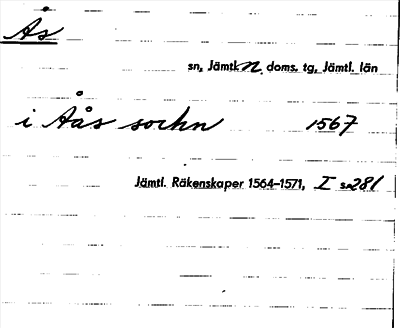 Ås
sn, Jämtl. n. doms. tg, Jämtl. län
i Aås sochn 1567
Jämtl. Räkenskaper 1564–1571, I s. 281